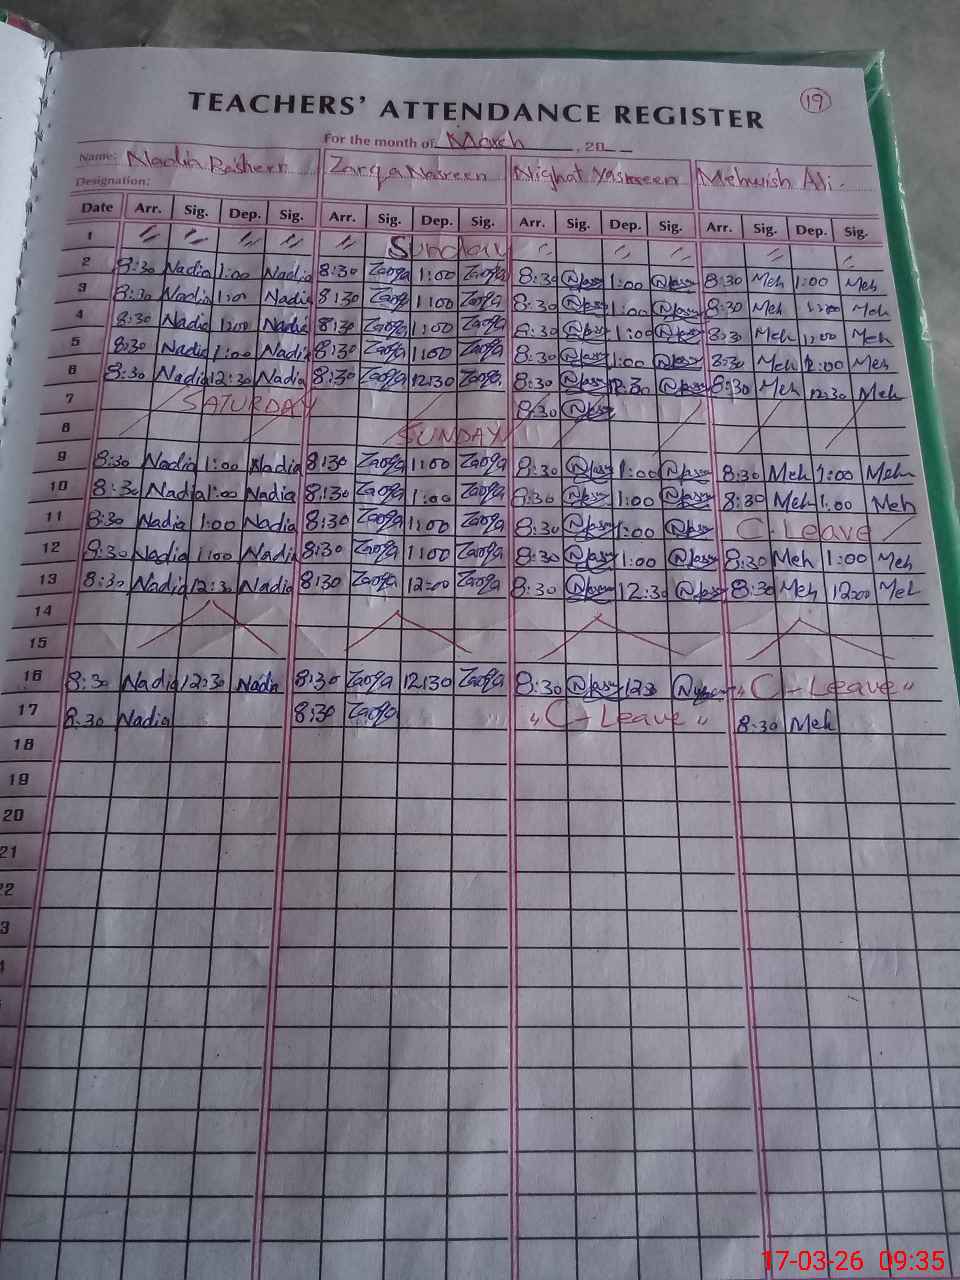 19
TEACHERS' ATTENDANCE REGISTER
For the month of March, 20
Name: Nadia Basheer Zarqa Nasreen Nighat Yasmeen Mehwish Ali.
Designation:
Date Arr. Sig. Dep. Sig. Arr. Sig. Dep. Sig. Arr. Sig. Dep. Sig. Arr. Sig. Dep. Sig.
1 Sunday
2 8:30 Nadia 1:00 Nadia 8:30 Zarqa 1:00 Zarqa 8:30 1:00 8:30 Meh 1:00 Meh
3 8:30 Nadia 1:00 Nadia 8:30 Zarqa 1:00 Zarqa 8:30 1:00 8:30 Meh Meh
4 8:30 Nadia 1:00 Nadia 8:30 Zarqa 1:00 Zarqa 8:30 1:00 8:30 Meh 1:00 Meh
5 8:30 Nadia 1:00 Nadia 8:30 Zarqa 1:00 Zarqa 8:30 1:00 8:30 Meh 1:00 Meh
6 8:30 Nadia 12:30 Nadia 8:30 Zarqa 12:30 Zarqa 8:30 12:30 8:30 Meh 12:30 Meh
7 SATURDAY 8:30
8 SUNDAY
9 8:30 Nadia 1:00 Nadia 8:30 Zarqa 1:00 Zarqa 8:30 1:00 8:30 Meh 1:00 Meh
10 8:30 Nadia 1:00 Nadia 8:30 Zarqa 1:00 Zarqa 8:30 1:00 8:30 Meh 1:00 Meh
11 8:30 Nadia 1:00 Nadia 8:30 Zarqa 1:00 Zarqa 8:30 1:00 C-Leave
12 8:30 Nadia 1:00 Nadia 8:30 Zarqa 1:00 Zarqa 8:30 1:00 8:30 Meh 1:00 Meh
13 8:30 Nadia 12:30 Nadia 8:30 Zarqa 12:00 Zarqa 8:30 12:30 8:30 Meh 12:00 Meh
14
15
16 8:30 Nadia 12:30 Nadia 8:30 Zarqa 12:30 Zarqa 8:30 1230 "C-Leave"
17 8:30 Nadia 8:30 Zarqa "C-Leave" 8:30 Meh
18
19
20
21
22
3
17-03-26 09:35